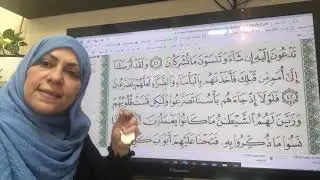 تَدْعُونَ إِلَيْهِ إِن شَاءَ وَتَنسَوْنَ مَا تُشْرِكُونَ ﴿٤١﴾ وَلَقَدْ أَرْسَلْنَا
إِلَىٰ أُمَمٍ مِّن قَبْلِكَ فَأَخَذْنَاهُم بِالْبَأْسَاءِ وَالضَّرَّاءِ لَعَلَّهُمْ يَتَضَرَّعُونَ
﴿٤٢﴾ فَلَوْلَا إِذْ جَاءَهُم بَأْسُنَا تَضَرَّعُوا وَلَٰكِن قَسَتْ قُلُوبُهُمْ
وَزَيَّنَ لَهُمُ الشَّيْطَانُ مَا كَانُوا يَعْمَلُونَ
نَسُوا مَا ذُكِّرُوا بِهِ فَتَحْنَا عَلَيْهِمْ أَبْوَابَ